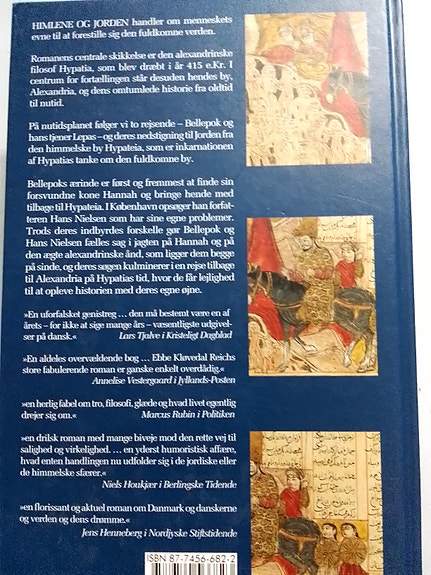 HIMLENE OG JORDEN handler om menneskets
evne til at forestille sig den fuldkomne verden.
Romanens centrale skikkelse er den alexandrinske
filosof Hypatia, som blev dræbt i år 415 e.Kr. I
centrum for fortællingen står desuden hendes by,
Alexandria, og dens omtumlede historie fra oldtid
til nutid.
På nutidsplanet følger vi to rejsende – Bellepok og
hans tjener Lepas – og deres nedstigning til Jorden fra
den himmelske by Hypateia, som er inkarnationen
af Hypatias tanke om den fuldkomne by.
Bellepoks ærinde er først og fremmest at finde sin
forsvundne kone Hannah og bringe hende med
tilbage til Hypateia. I København opsøger han forfat-
teren Hans Nielsen som har sine egne problemer.
Trods deres indbyrdes forskelle gør Bellepok og
Hans Nielsen fælles sag i jagten på Hannah og på
den ægte alexandrinske ånd, som ligger dem begge
på sinde, og deres søgen kulminerer i en rejse tilbage
til Alexandria på Hypatias tid, hvor de får lejlighed
til at opleve historien med deres egne øjne.
»En uforfalsket genistreg … den må bestemt være en af
årets – for ikke at sige mange års – væsentligste udgivel-
ser på dansk.« Lars Tjalve i Kristeligt Dagblad
»En aldeles overvældende bog … Ebbe Kløvedal Reichs
store fabulerende roman er ganske enkelt overdådig.«
Annelise Vestergaard i Jyllands-Posten
»en herlig fabel om tro, filosofi, glæde og hvad livet egentlig
drejer sig om.« Marcus Rubin i Politiken
»en drilsk roman med mange biveje mod den rette vej til
salighed og virkelighed. … en yderst humoristisk affære,
hvad enten handlingen nu udfolder sig i de jordiske eller
de himmelske sfærer.«
Niels Houkjær i Berlingske Tidende
»en florissant og aktuel roman om Danmark og danskerne
og verden og dens drømme.«
Jens Henneberg i Nordjyske Stiftstidende
ISBN 87-7456-682-2